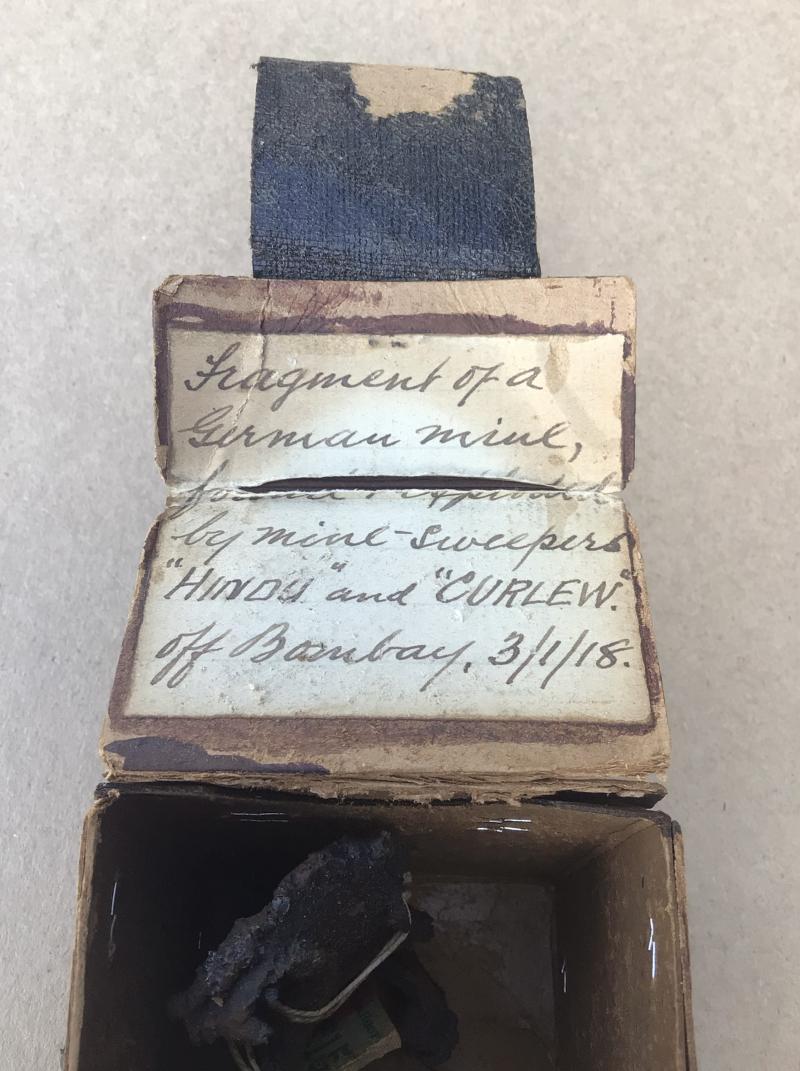 Fragment of a
German mine,
found & exploded
by mine-sweepers
"HINDU" and "CURLEW".
off Bombay, 3/1/18.